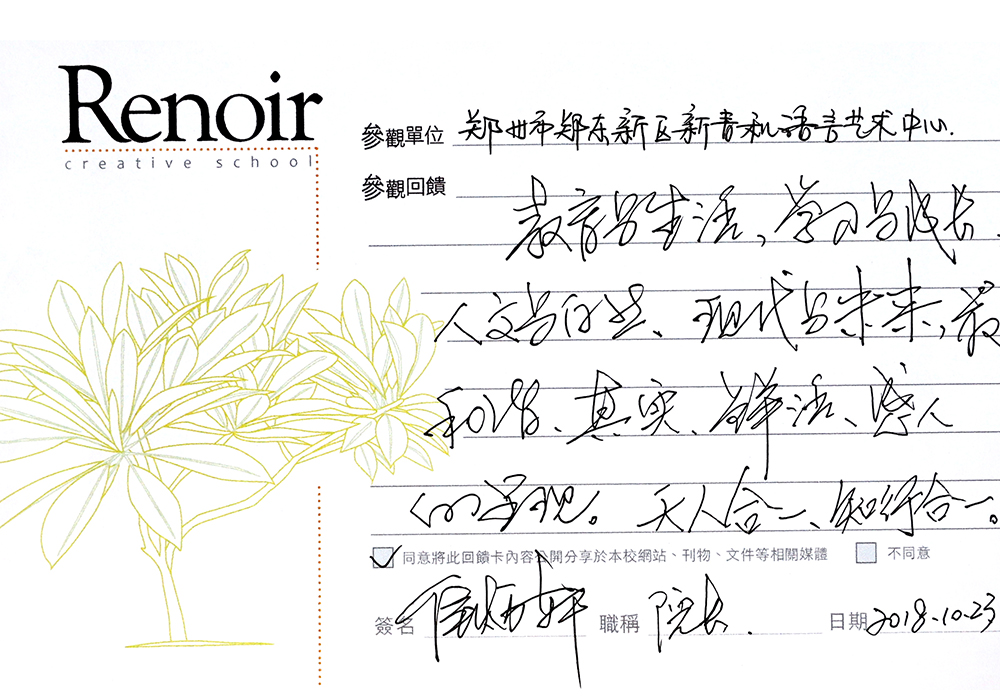 Renoir
creative school
參觀單位 郑州市郑东新区新青和语言艺术中心.
參觀回饋
教育与生活、学习与成长、
人文与自然、现代与未来,最
和谐、真实、鲜活、感人
的呈现。天人合一、知行合一。
同意將此回饋卡內容公開分享於本校網站、刊物、文件等相關媒體 不同意
簽名 職稱 院长. 日期 2018-10-23